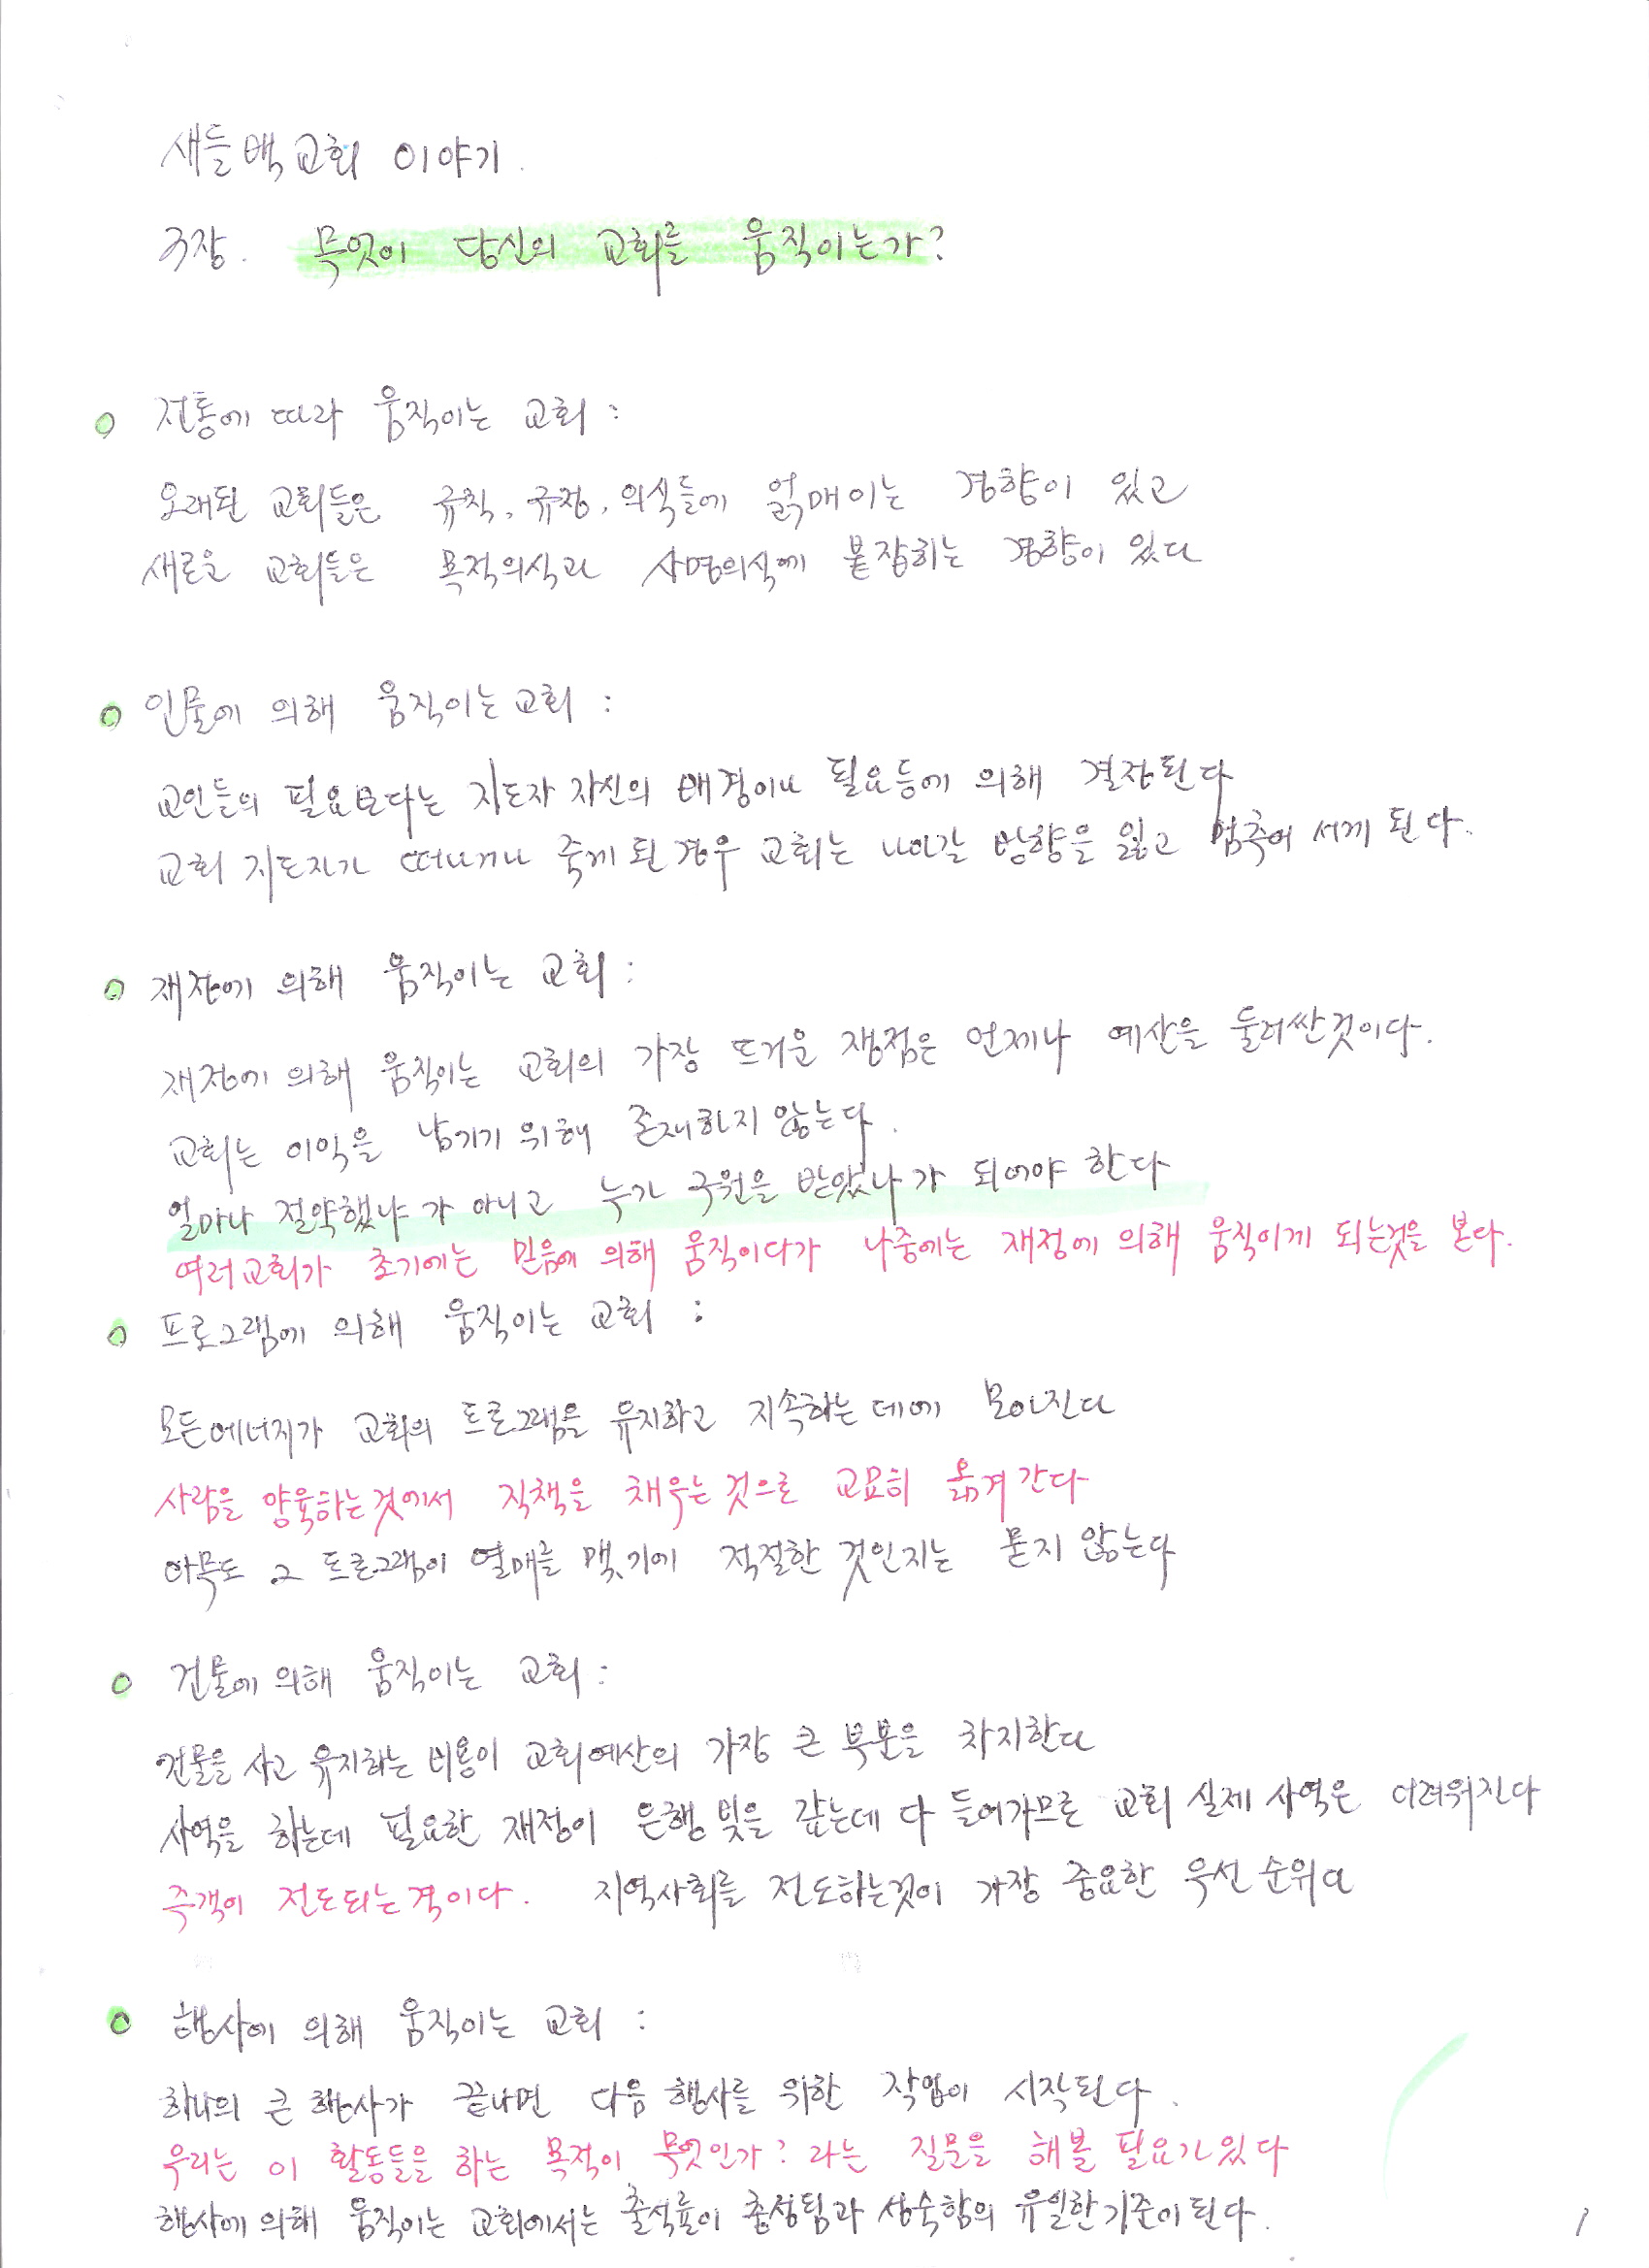 새들백교회 이야기.
3장. 무엇이 당신의 교회를 움직이는가?
전통에 따라 움직이는 교회 :
오래된 교회들은 규칙, 규정, 의식들에 얽매이는 경향이 있고
새로운 교회들은 목적의식과 사명의식에 붙잡히는 경향이 있다
인물에 의해 움직이는 교회 :
교인들의 필요보다는 지도자 자신의 배경이나 필요등에 의해 결정된다
교회 지도자가 떠나거나 죽게 된 경우 교회는 나아갈 방향을 잃고 멈추어 서게 된다.
재정에 의해 움직이는 교회 :
재정에 의해 움직이는 교회의 가장 뜨거운 쟁점은 언제나 예산을 둘러싼것이다.
교회는 이익을 남기기 위해 존재하지 않는다.
얼마나 절약했냐 가 아니고 누가 구원을 받았나 가 되어야 한다
여러교회가 초기에는 믿음에 의해 움직이다가 나중에는 재정에 의해 움직이게 되는것을 본다.
프로그램에 의해 움직이는 교회 :
모든에너지가 교회의 프로그램을 유지하고 지속하는 데에 모아진다
사람을 양육하는것에서 직책을 채우는 것으로 교묘히 옮겨 간다
아무도 그 프로그램이 열매를 맺기에 적절한 것인지는 묻지 않는다
건물에 의해 움직이는 교회 :
건물을 사고 유지하는 비용이 교회예산의 가장 큰 부분을 차지한다
사역을 하는데 필요한 재정이 은행 빚을 갚는데 다 들어가므로 교회 실제 사역은 어려워진다
주객이 전도되는 격이다. 지역사회를 전도하는것이 가장 중요한 우선 순위다
행사에 의해 움직이는 교회 :
하나의 큰 행사가 끝나면 다음 행사를 위한 작업이 시작된다.
우리는 이 활동들을 하는 목적이 무엇인가? 라는 질문을 해볼 필요가있다
행사에 의해 움직이는 교회에서는 출석률이 충성됨과 성숙함의 유일한 기준이 된다.
1